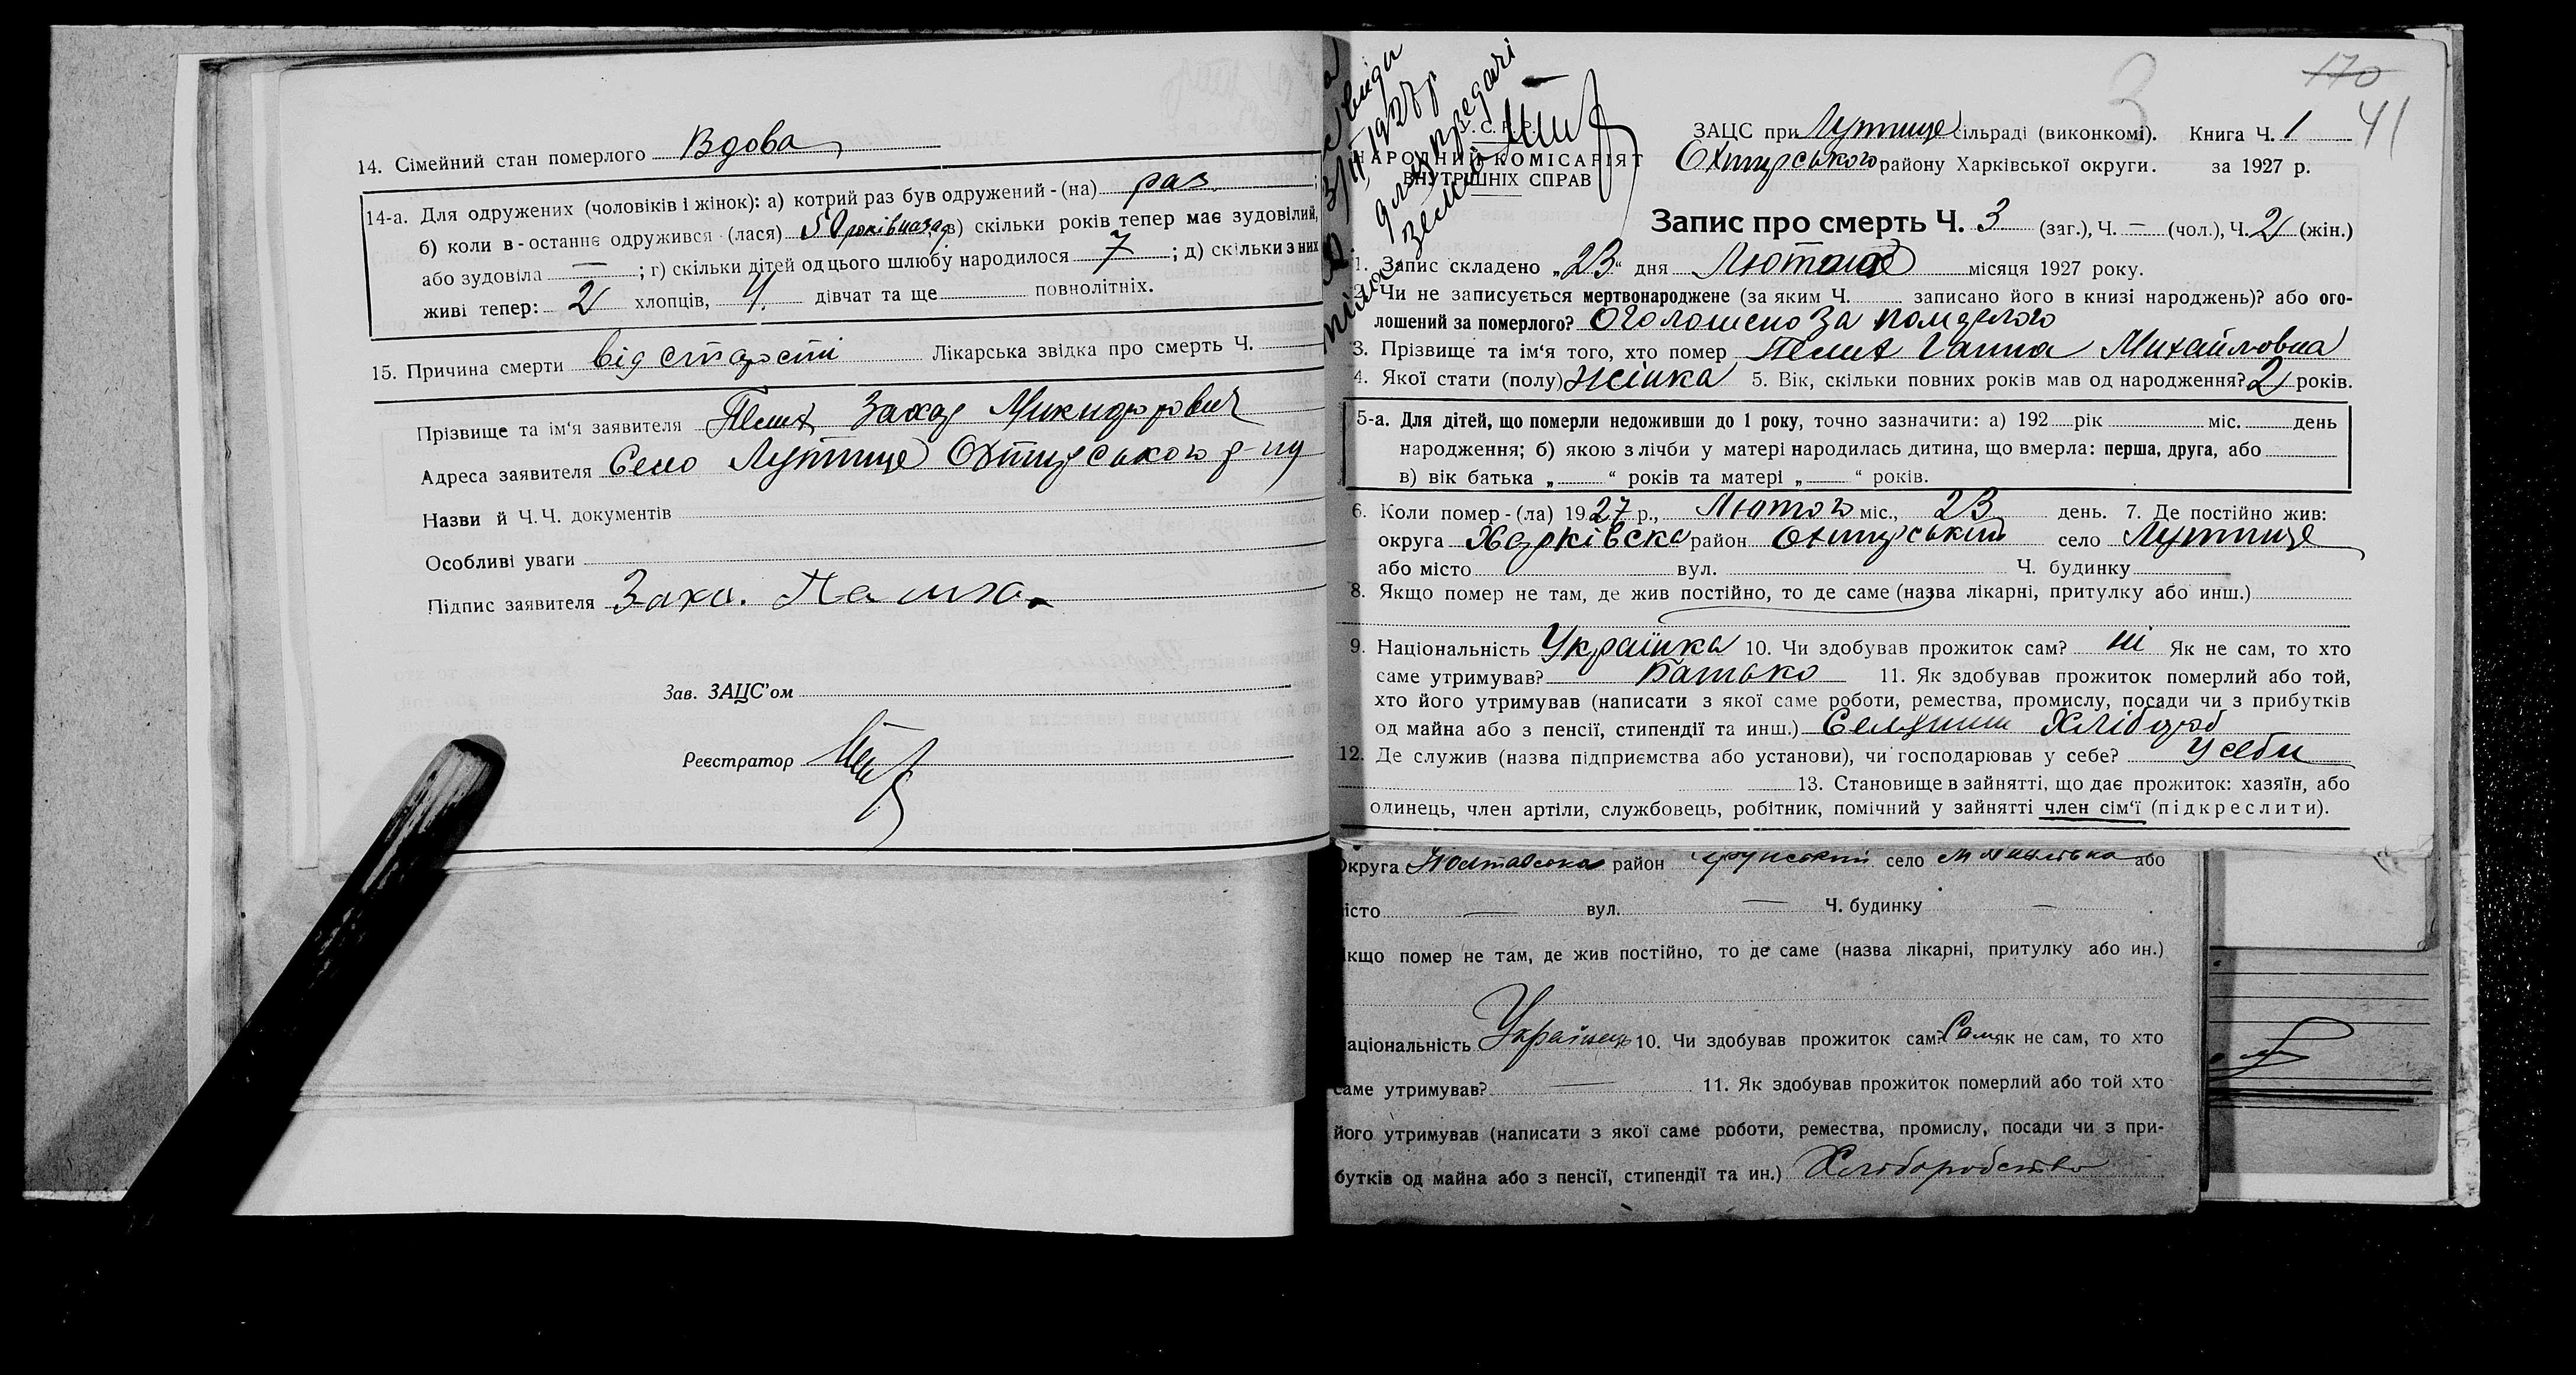 14. Сімейний стан померлого Вдова
14-а. Для одружених (чоловіків і жінок): а) котрий раз був одружений-(на) раз ;
б) коли в-останнє одружився (лася) 50 років назад, в) скільки років тепер має зудовілий,
або зудовіла — ; г) скільки дітей од цього шлюбу народилося 7 ; д) скільки з них
живі тепер: 2 хлопців, 4. дівчат та ще повнолітніх.
15. Причина смерти від старости Лікарська звідка про смерть Ч.
Прізвище та ім'я заявителя Захар
Адреса заявителя Село Лутище Охтирського р-ну
Назви й Ч.Ч. документів
Особливі уваги
Підпис заявителя
Зав. ЗАЦС'ом
Реєстратор
170
3
41
У. С. Р. Р.
НАРОДНИЙ КОМІСАРІЯТ
ВНУТРІШНІХ СПРАВ
ЗАЦС при Лутище сільраді (виконкомі). Книга Ч. 1
Охтирського району Харківської округи. за 1927 р.
Запис про смерть Ч. 3 (заг.), Ч. — (чол.), Ч. 2 (жін.)
1. Запис складено „23“ дня Лютого місяця 1927 року.
Чи не записується мертвонароджене (за яким Ч. записано його в книзі народжень)? або ого-
лошений за померлого? Оголошено за померлого
3. Прізвище та ім'я того, хто помер Ганна Михайловна
4. Якої стати (полу) Жінка 5. Вік, скільки повних років мав од народження? 2 років.
5-а. Для дітей, що померли недоживши до 1 року, точно зазначити: а) 192 рік міс. день
народження; б) якою з лічби у матері народилась дитина, що вмерла: перша, друга, або
в) вік батька „ “ років та матері „ “ років.
6. Коли помер-(ла) 1927 р., Лютого міс., 23 день. 7. Де постійно жив:
округа Харківска район Охтирський село Лутище
або місто вул. Ч. будинку
8. Якщо помер не там, де жив постійно, то де саме (назва лікарні, притулку або инш.)
9. Національність Українка 10. Чи здобував прожиток сам? ні Як не сам, то хто
саме утримував? Батько 11. Як здобував прожиток померлий або той,
хто його утримував (написати з якої саме роботи, ремества, промислу, посади чи з прибутків
од майна або з пенсії, стипендії та инш.) Хлібороб
12. Де служив (назва підприємства або установи), чи господарював у себе? У себи
13. Становище в зайнятті, що дає прожиток: хазяїн, або
одинець, член артіли, службовець, робітник, помічний у зайнятті член сім'ї (підкреслити).
округа Полтавська район село або
місто — вул. — Ч. будинку —
Якщо помер не там, де жив постійно, то де саме (назва лікарні, притулку або ин.)
Національність Українець 10. Чи здобував прожиток сам? Сам як не сам, то хто
саме утримував? — 11. Як здобував прожиток померлий або той хто
його утримував (написати з якої саме роботи, ремества, промислу, посади чи з при-
бутків од майна або з пенсії, стипендії та ин.) Хліборобство